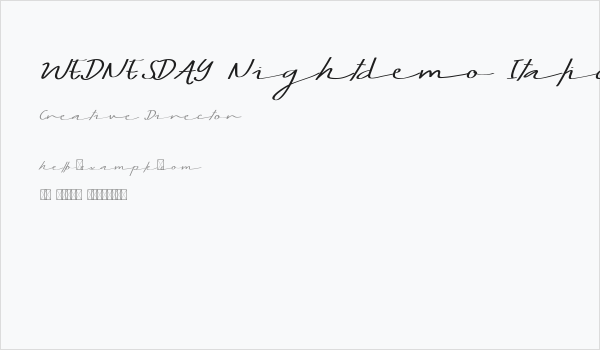 WEDNESDAY Nightdemo Ital
Creative Director
hello example com